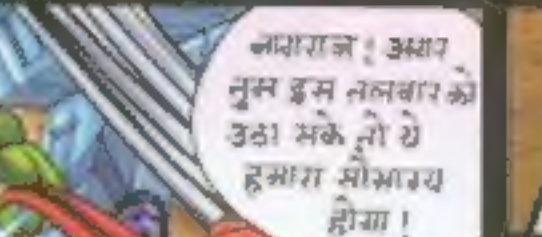 नागराज ! अगर
तुम इस तलवार को
उठा सके तो ये
हमारा सौभाग्य
होगा !